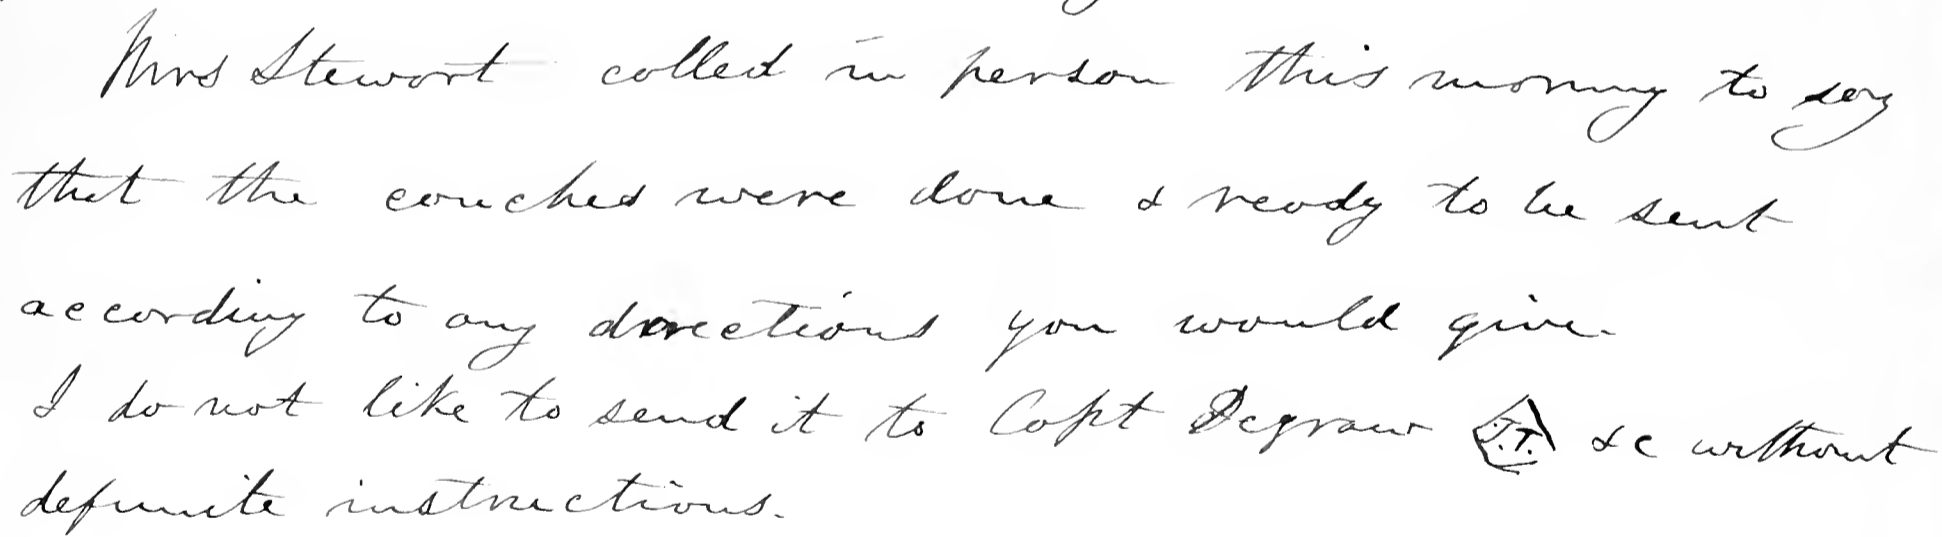 Mrs Stewart called in person this morning to say
that the couches were done & ready to be sent
according to any directions you would give.
I do not like to send it to Capt Degraw J.T. &c without
definite instructions.